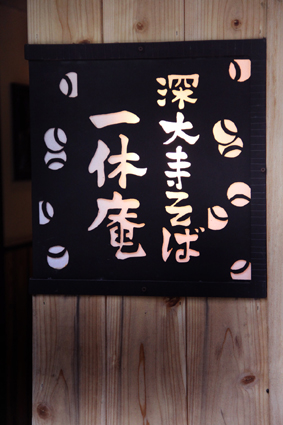 深大寺そば
一休庵